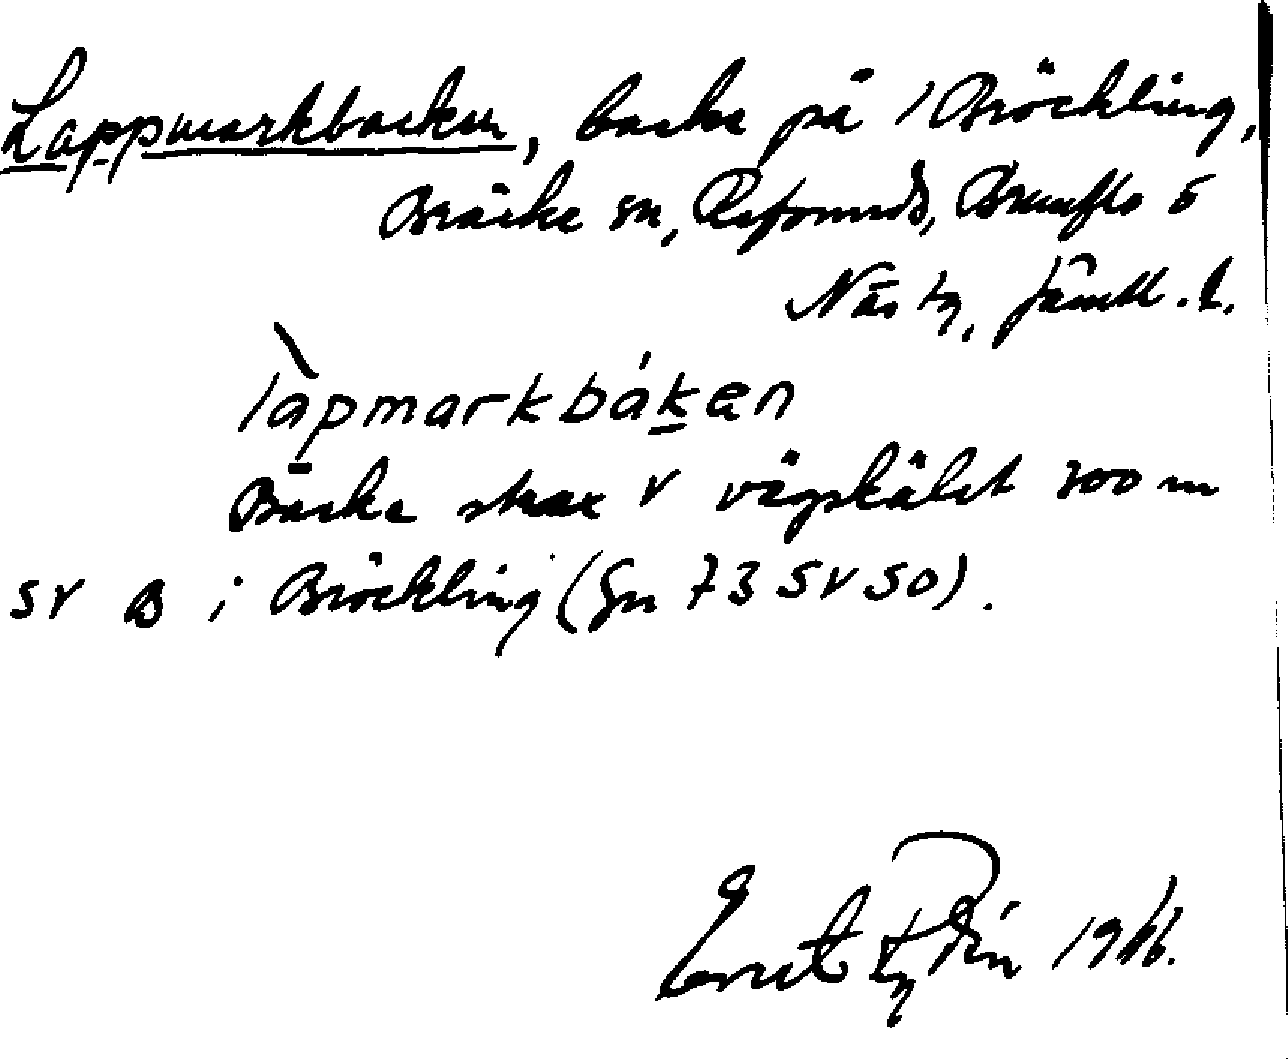 Lappmarkbacken, backe på 1 Bröckling,
Bräcke sn, Refsunds, Brunflo o
Näs tg, Jämtl. l.
làpmarkbákan
Backe strax v vägskälet 300 m
SV B i Bröckling (Gn 73 SV SO).
1966.